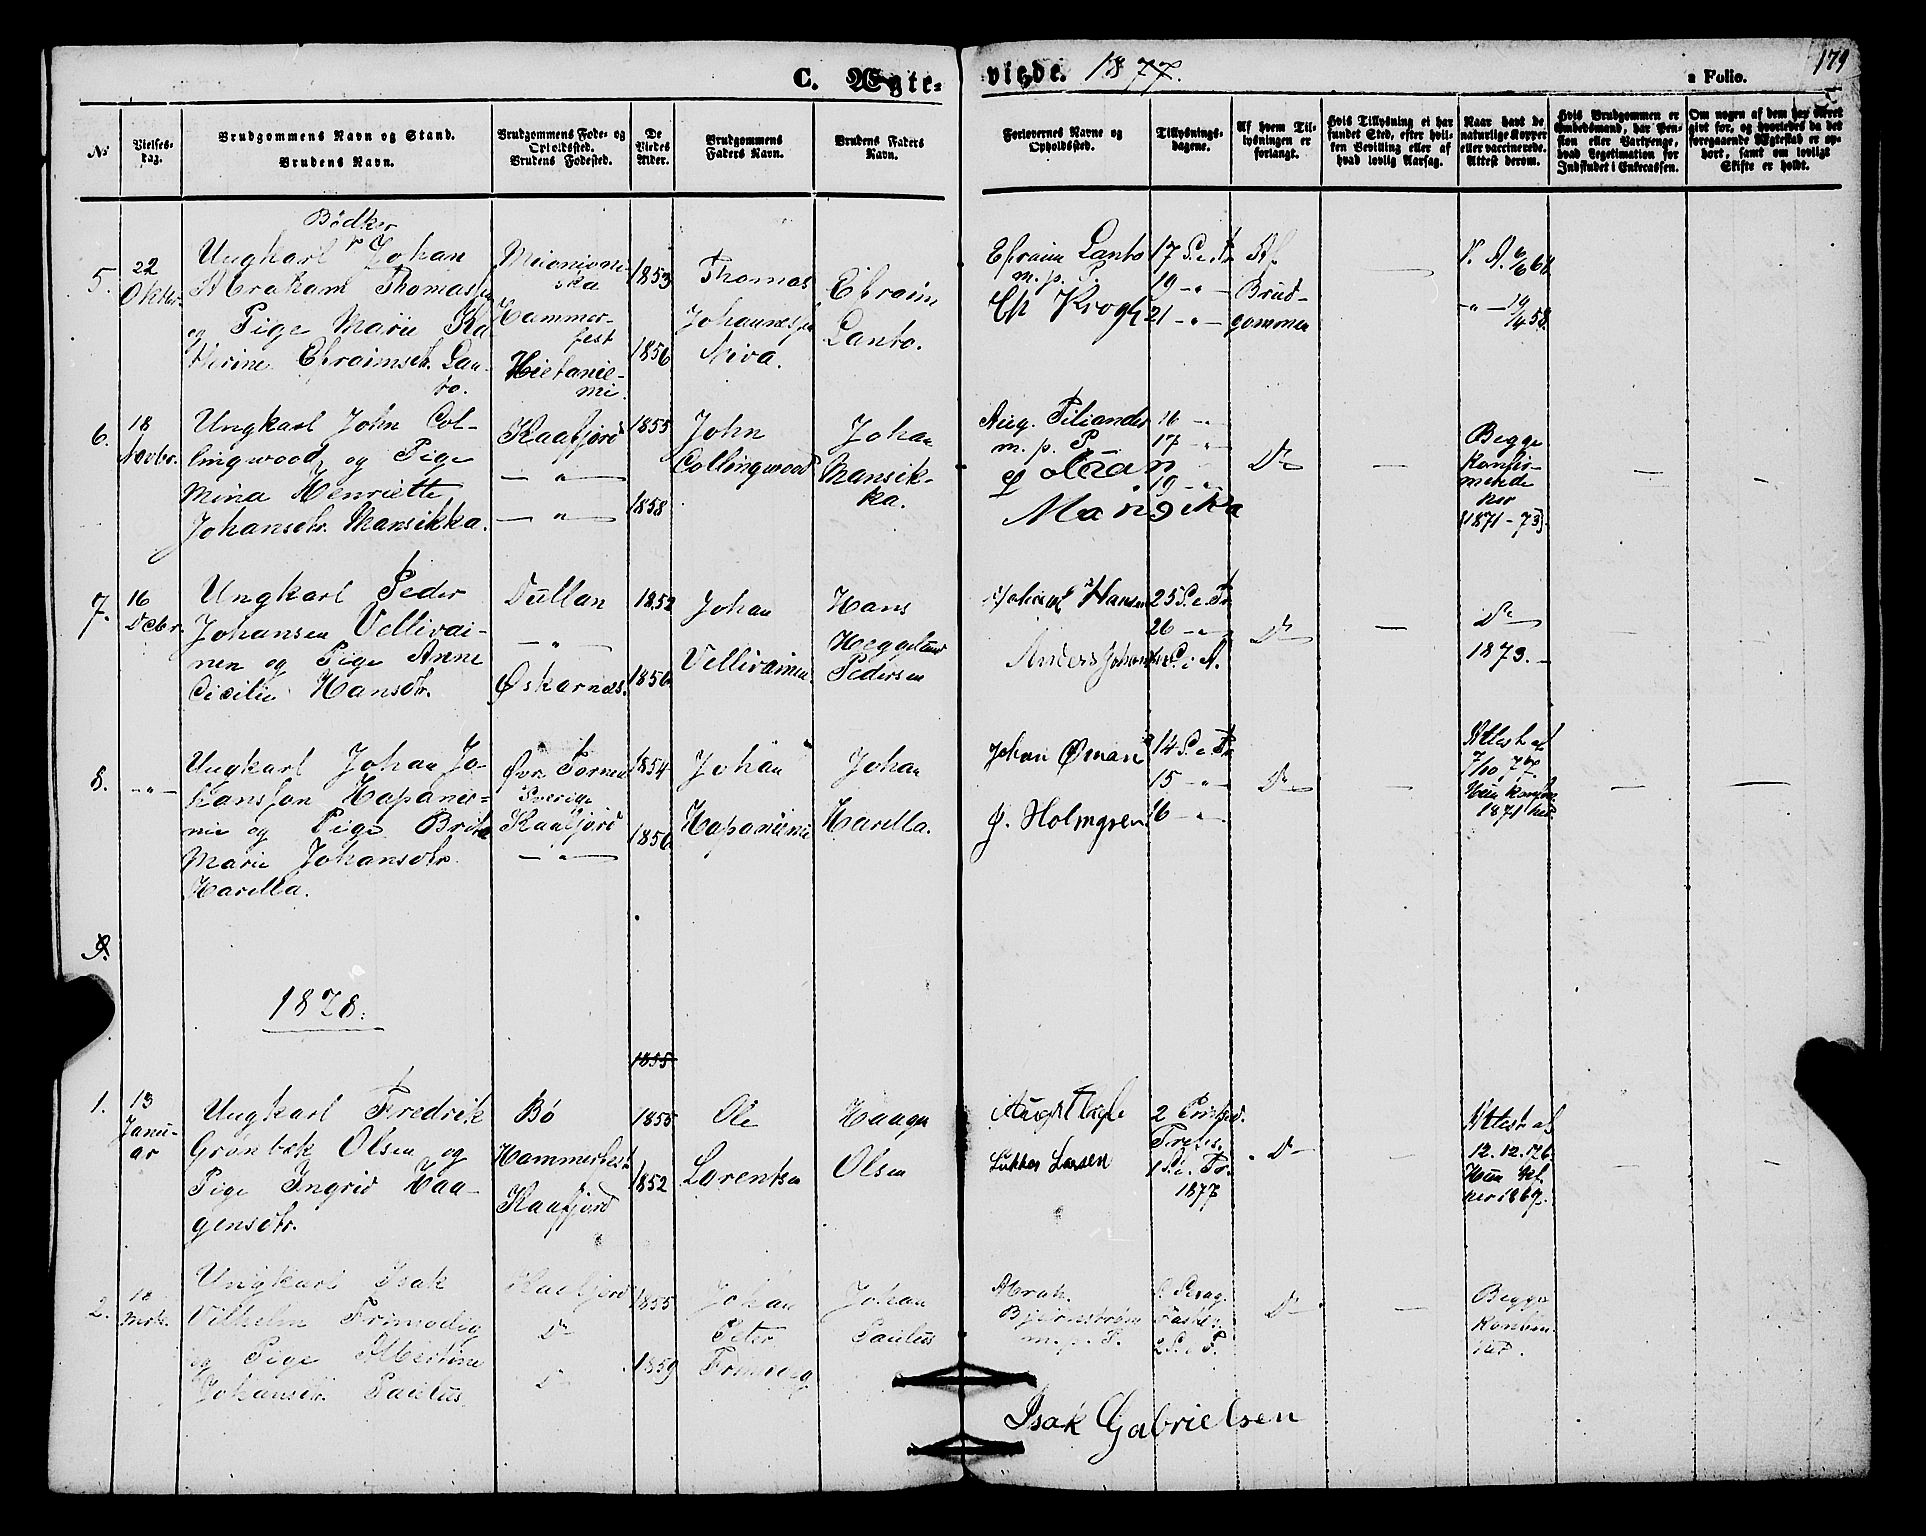 C. Ægte-
viede. 1877.
a Folio.
179
No
Vielses-
dag.
Brudgommens Navn og Stand.
Brudens Navn.
Brudgommens Føde- og
Opholdssted.
Brudens Fødested.
De
Viedes
Alder.
Brudgommens
Faders Navn.
Brudens Faders
Navn.
Forlovernes Navne og
Opholdssted.
Tillysnings-
dagene.
Af hvem Til-
lysningen er
forlangt.
Hvis Tillysning ei har
fundet Sted, efter hvil-
ken Bevilling eller af
hvad lovlig Aarsag.
Naar havt de
naturlige Kopper
eller vaccinerede.
Attest derom.
Hvis Brudgommen er
Embedsmand, har Pen-
sion eller Vartpenge,
hvad Legitimation for
Indskudet i Enkecassen.
Om nogen af dem har været
gift før, og hvorledes da det
foregaaende Ægteskab er op-
hørt, samt om lovligt
Skifte er holdt.
5.
22
Oktbr.
Bødker
Ungkarl Johan
Abraham Thomassen
og Pige Marie Ka
therine Efraimsdtr. Lan-
to.
Muonione-
ska
Hammer-
fest
Hietanie-
mi.
1853
1856
Thomas
Johannessen
Niva.
Efraim
Lanto.
Efraim Lanto
m. p. P.
Krogh
17 S. e. Tr.
19 - " -
21 - " -
Af
Brud-
gommen
V. A.
6.
18
Novbr.
Ungkarl John Col-
lingwood og Pige
Mina Henriette
Johansdtr. Mansikka.
Kaafjord
- " -
- " -
1855
1858
John
Collingwood
Johan
Mansik-
ka.
Aug. Tiliander
m. p. P.
Johan
Mansikka
16 - " -
17 - " -
19 - " -
Do
Begge
konfir-
merede
her
(1871-73).
7.
16
Decbr.
Ungkarl Peder
Johansen Vellivai-
nen og Pige Anne
Cecilie Hansdtr.
Dullan
- " -
Øskarnæs.
1852
1856
Johan
Vellivainen.
Hans
Heggelund
Pedersen
Johan Hansen
Anders Johansen
25 S. e. Tr.
26 - " -
S. i A.
Do
Do
1873.
8.
- " -
Ungkarl Johan Jo-
hanssen Hapanie-
mie og Pige Brita
Marie Johansdtr.
Harilla.
Øvr. Tornea
Sverige
Kaafjord
- " -
1854
1856
Johan
Hapaniemi
Johan
Harilla.
Johan Öman
J. Holmgren
14 S. e. Tr.
15 - " -
16 - " -
Do
Attest af
7/10 77
Hun konf.
1871 her.
9.
1878.
1855
1.
13
Janu-
ar
Ungkarl Fredrik
Grønbek Olsen og
Pige Ingrid Haa-
gensdtr.
Bö
Hammerfest
Kaafjord
1855
1852
Ole
Lorentsen
Haagen
Olsen
Lukkas Larsen
2
1 S. i. Tr.
1877
Do
Attest af
12.12.76
Hun kf.
her 1869.
2.
Ungkarl Isak
Vilhelm Frimodig
og Pige Albertine
Johansdtr. Paulus
Kaafjord
Do
Do
1855
1859
Johan
Peter
Frimodig
Johan
Paulus
Abrah.
Bjørnstrøm
m. p. P.
Isak Gabrielsen
2 S. i F.
Do
Begge
konfir.
her.